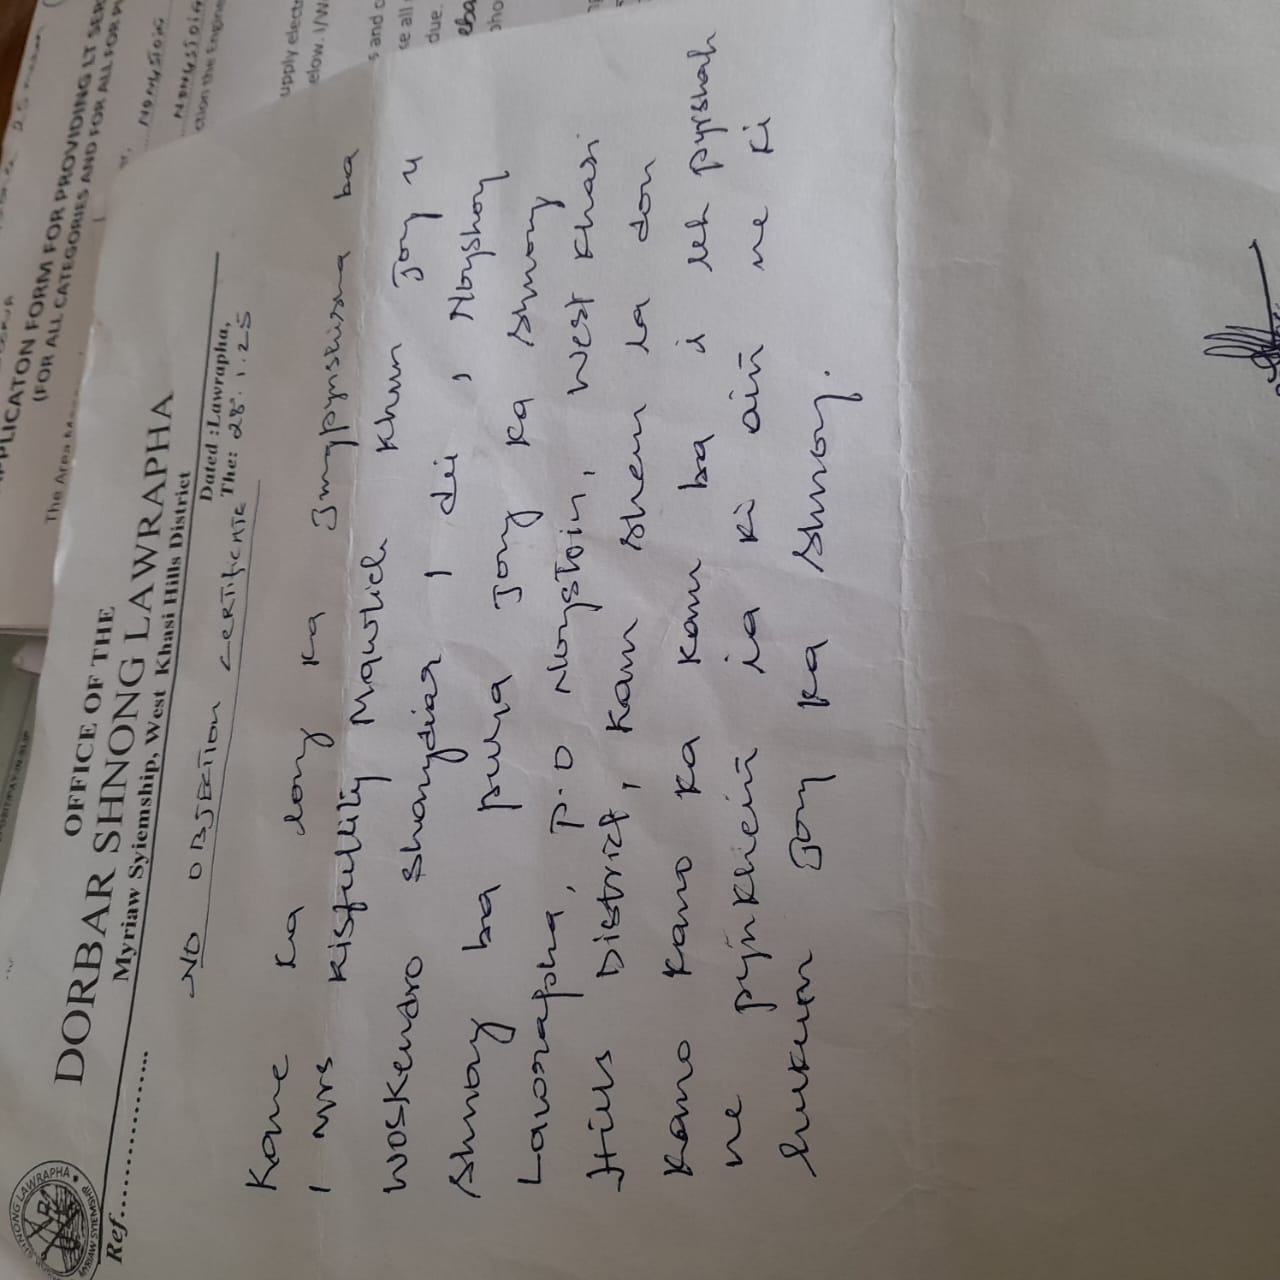 APPLICATON FORM FOR PROVIDING LT SER
(FOR ALL CATEGORIES AND FOR ALL FOR PU
The Area
NONGSTOIN
NONGSTOIN
ction the Engine
upply electr
elow. I/W
s and o
se all
due.
OFFICE OF THE
DORBAR SHNONG LAWRAPHA
Myriaw Syiemship, West Khasi Hills District
Ref..................
Dated :Lawrapha,
The: 28.1.25
NO OBJEKTION CERTIFICATE
Kane ka long ka Jingpynshisha ba
I Mrs Kisfullity Mawlieh khun jong u
Woskendro Shangdiar I dei, Nongshong
Shnong ba pura jong ka Shnong
Lawrapha, P.O Nongstoin, West Khasi
Hills District, kam shem la don
kano kano ka kam ba i leh pyrshah
ne pynkheiñ ia ki aiñ ne ki
hukum jong ka Shnong.